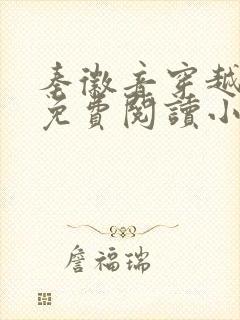 秦徽音穿越
免費閱讀小
詹福瑞